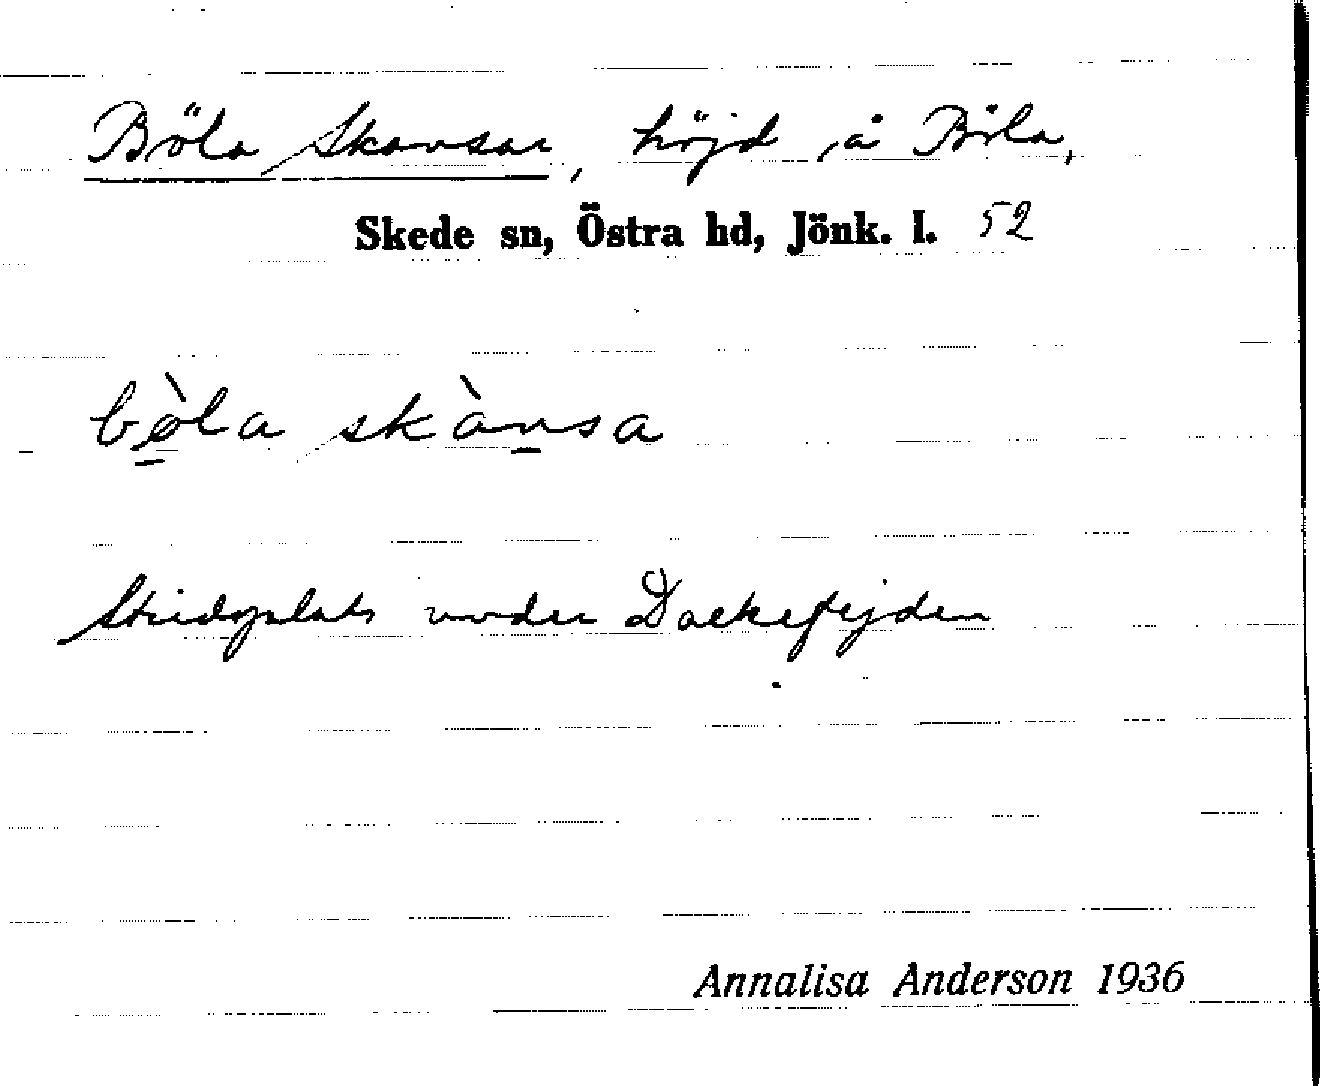 Böla Skansar, höjd å Böla,
Skede sn, Östra hd, Jönk. l. 52
bø̀la skànsa
Stridsplats under Dackefejden
Annalisa Anderson 1936